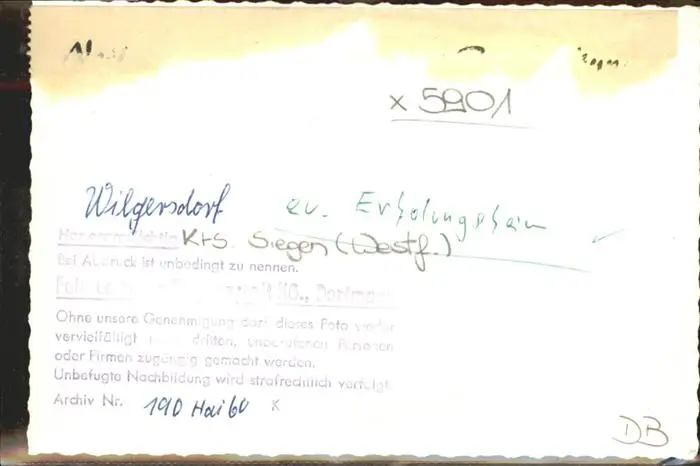 x 5901
Wilgersdorf ev. Erholungsheim
Krs. Siegen (Westf.)
Bei Abdruck ist unbedingt zu nennen.
KG., Dortmund
Ohne unsere Genehmigung darf dieses Foto weder
vervielfältigt noch dritten, unberufenen Personen
oder Firmen zugängig gemacht werden.
Unbefugte Nachbildung wird strafrechtlich verfolgt.
Archiv Nr. 190 Hai 60 x
DB